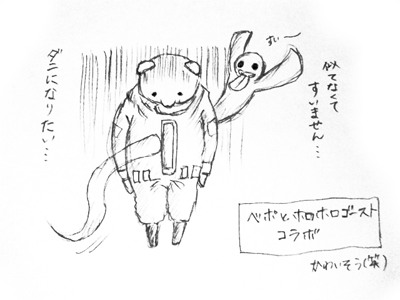 すいー
似てなくて
すいません…
ダニになりたい…
ベポとホロホロゴースト
コラボ
かわいそう(笑)